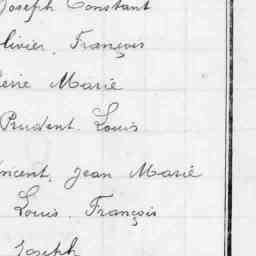 Joseph Constant
Olivier, François
Marie
Prudent. Louis
Vincent, Jean Marie
Louis. François
Joseph